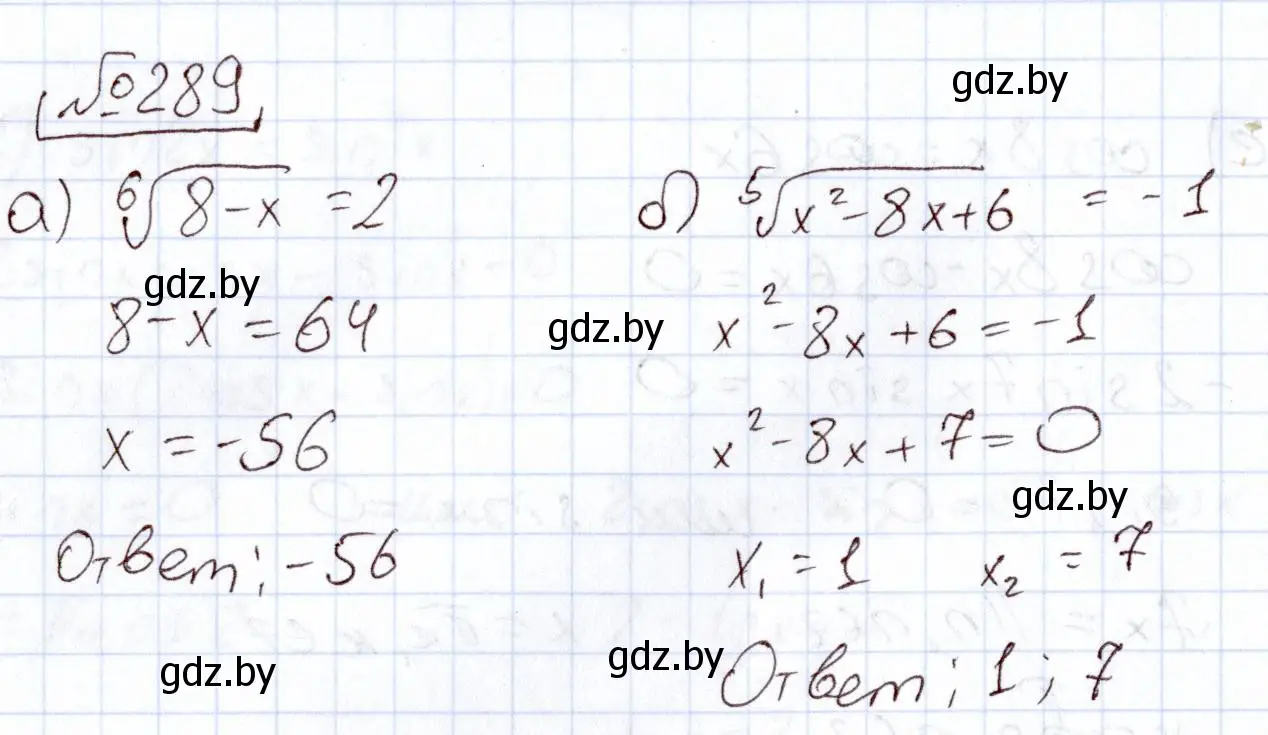 №289
gdz.by
а) ⁶√(8-x) = 2
б) ⁵√(x²-8x+6) = -1
gdz.by
8-x=64
gdz.by
x²-8x+6=-1
x=-56
x²-8x+7=0
gdz.by
Ответ: -56
x₁=1 x₂=7
gdz.by
gdz.by
Ответ: 1; 7